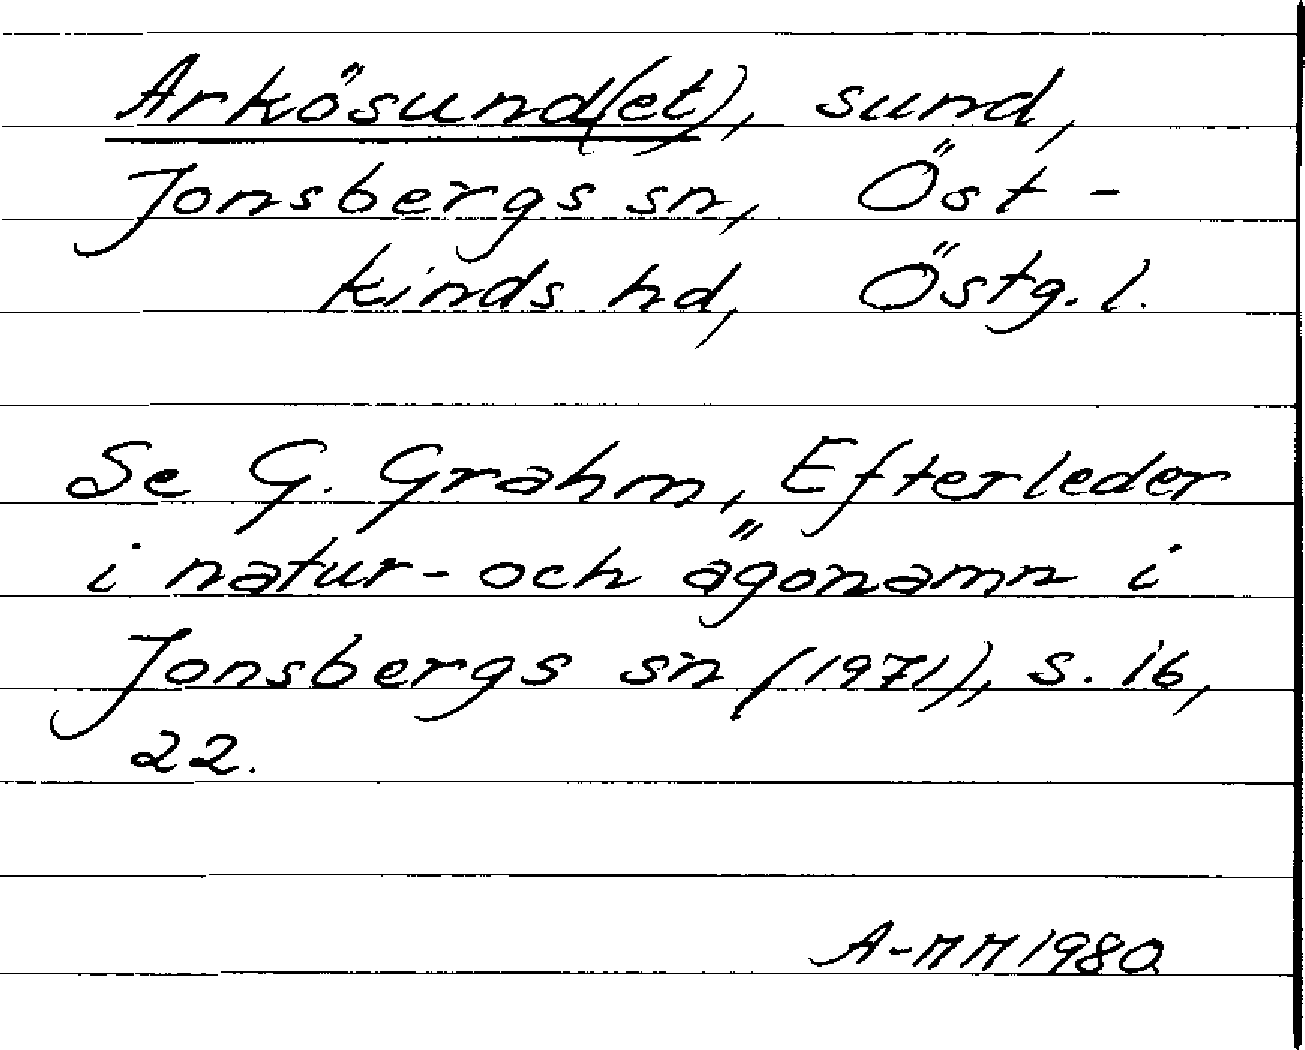 Arkösund(et), sund,
Jonsbergs sn, Öst-
kinds hd, Östg. l.
Se G. Grahm, Efterleder
i natur- och ägonamn i
Jonsbergs sn (1971), s. 16,
22.
A-MM 1980